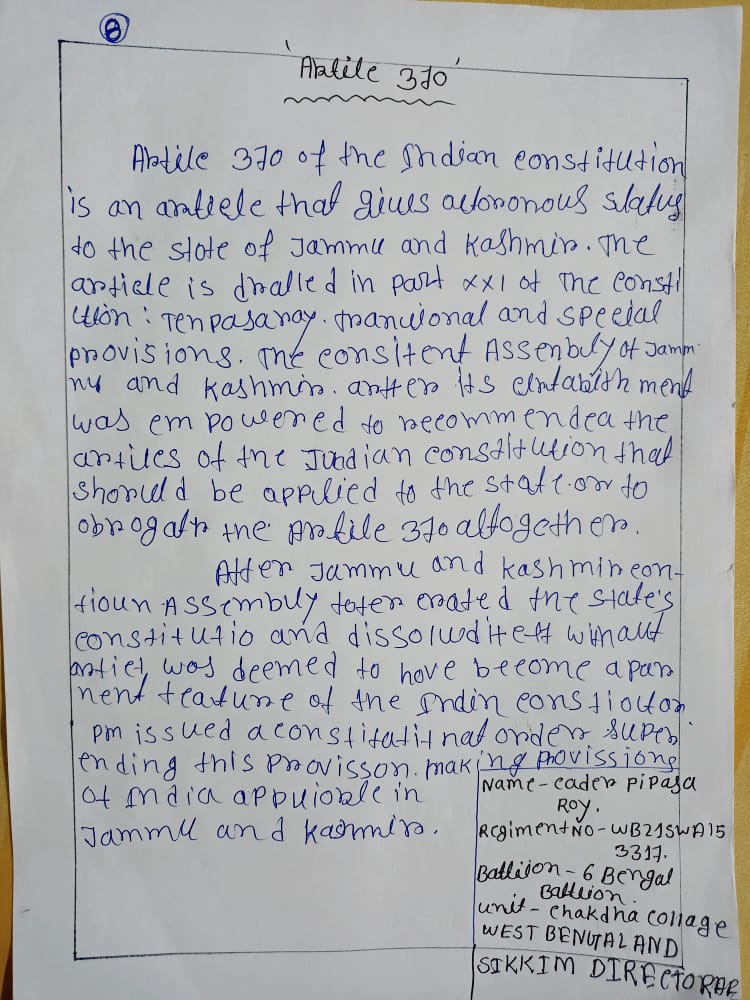 8
'Artile 370'
Artile 370 of the Indian constitution
is an artiele that gius autononous status
to the state of Jammu and Kashmir. The
article is dralled in part xx1 of The consti
ution : Tenpasaray. trancional and speeial
provisions. The consitent Assenbuly of Jamm
nu and Kashmir. antter its entablith ment
was em powered to recommendea the
artiles of the Jundian constitution that
should be appilied to the state.or to
obrogatr the Artile 370 altogether.
Atter Jammu and Kashmir con-
tioun Assembuly toter erated the state's
constitutio and dissolud itelt without
artiel, was deemed to hove become a par
nent feature of the Indin constioution
pm issued a constitatitnat order super
ending this provisson. making provissions
of India appuiorle in
Jammu and Kashmir.
Name - cader Pipasa
Roy.
Regiment NO - WB21SWA15
3317.
Batlilon - 6 Bengal
Batleion.
unit - Chakdha collage
WEST BENGAL AND
SIKKIM DIRECTORAE